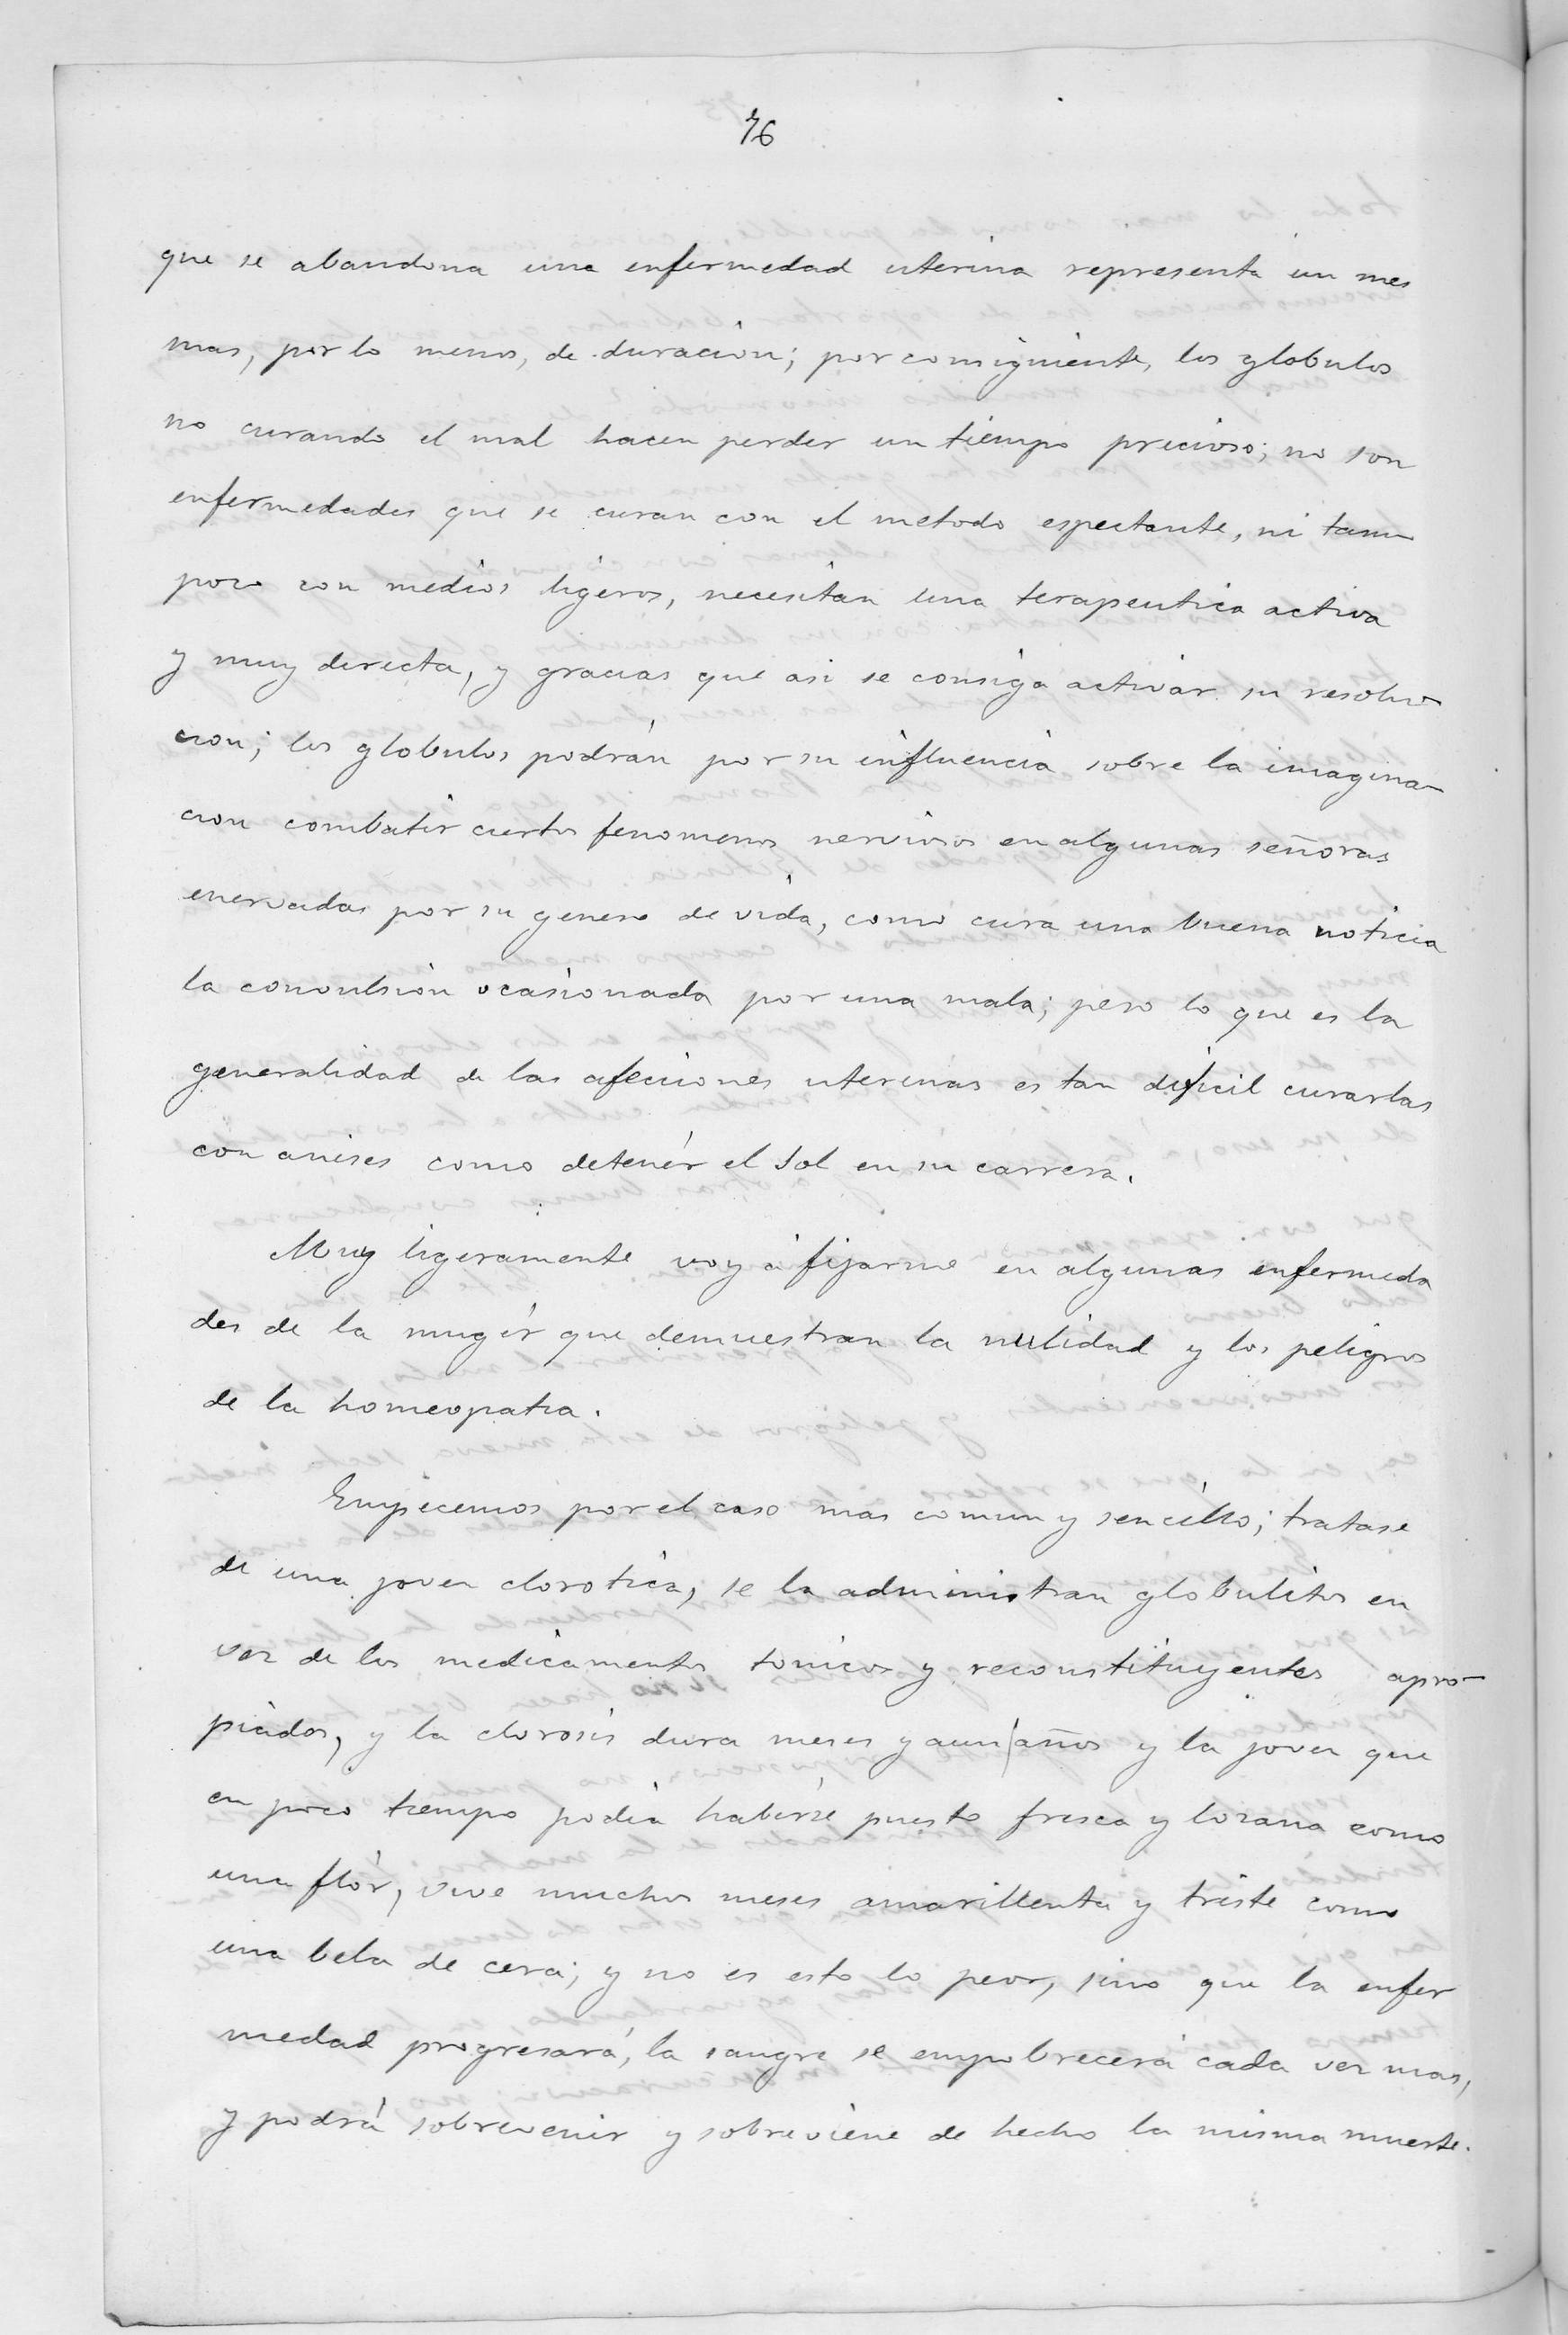 76
que se abandona una enfermedad uterina representa un mes
mas, por lo menos, de duracion; por consiguiente, los globulos
no curando el mal hacen perder un tiempo precioso; no son
enfermedades que se curan con el metodo espectante, ni tam
poco con medios ligeros, necesitan una terapeutica activa
y muy directa, y gracias que asi se consiga activar su resolu-
cion; los globulos podrán por su influencia sobre la imagina-
cion combatir ciertos fenomenos nerviosos en algunas señoras
enervadas por su genero de vida, como cura una buena noticia
la convulsion ocasionada por una mala; pero lo que es la
generalidad de las afecciones uterinas es tan dificil curarlas
con anises como detenér el Sol en su carrera.
Muy ligeramente voy á fijarme en algunas enfermeda
des de la mugér que demuestran la nulidad y los peligros
de la homeopatia.
Empecemos por el caso mas comun y sencillo; tratase
de una joven clorotica, se la administran globulitos en
vez de los medicamentos tonicos y reconstituyentes apro-
piados, y la clorosis dura meses y aun años y la joven que
en poco tiempo podia haberse puesto fresca y lozana como
una flór, vive muchos meses amarillenta y triste como
una bela de cera; y no es esto lo peor, sino que la enfer
medad progresará, la sangre se empobrecerá cada vez mas,
y podrá sobrevenir y sobreviene de hecho la misma muerte.